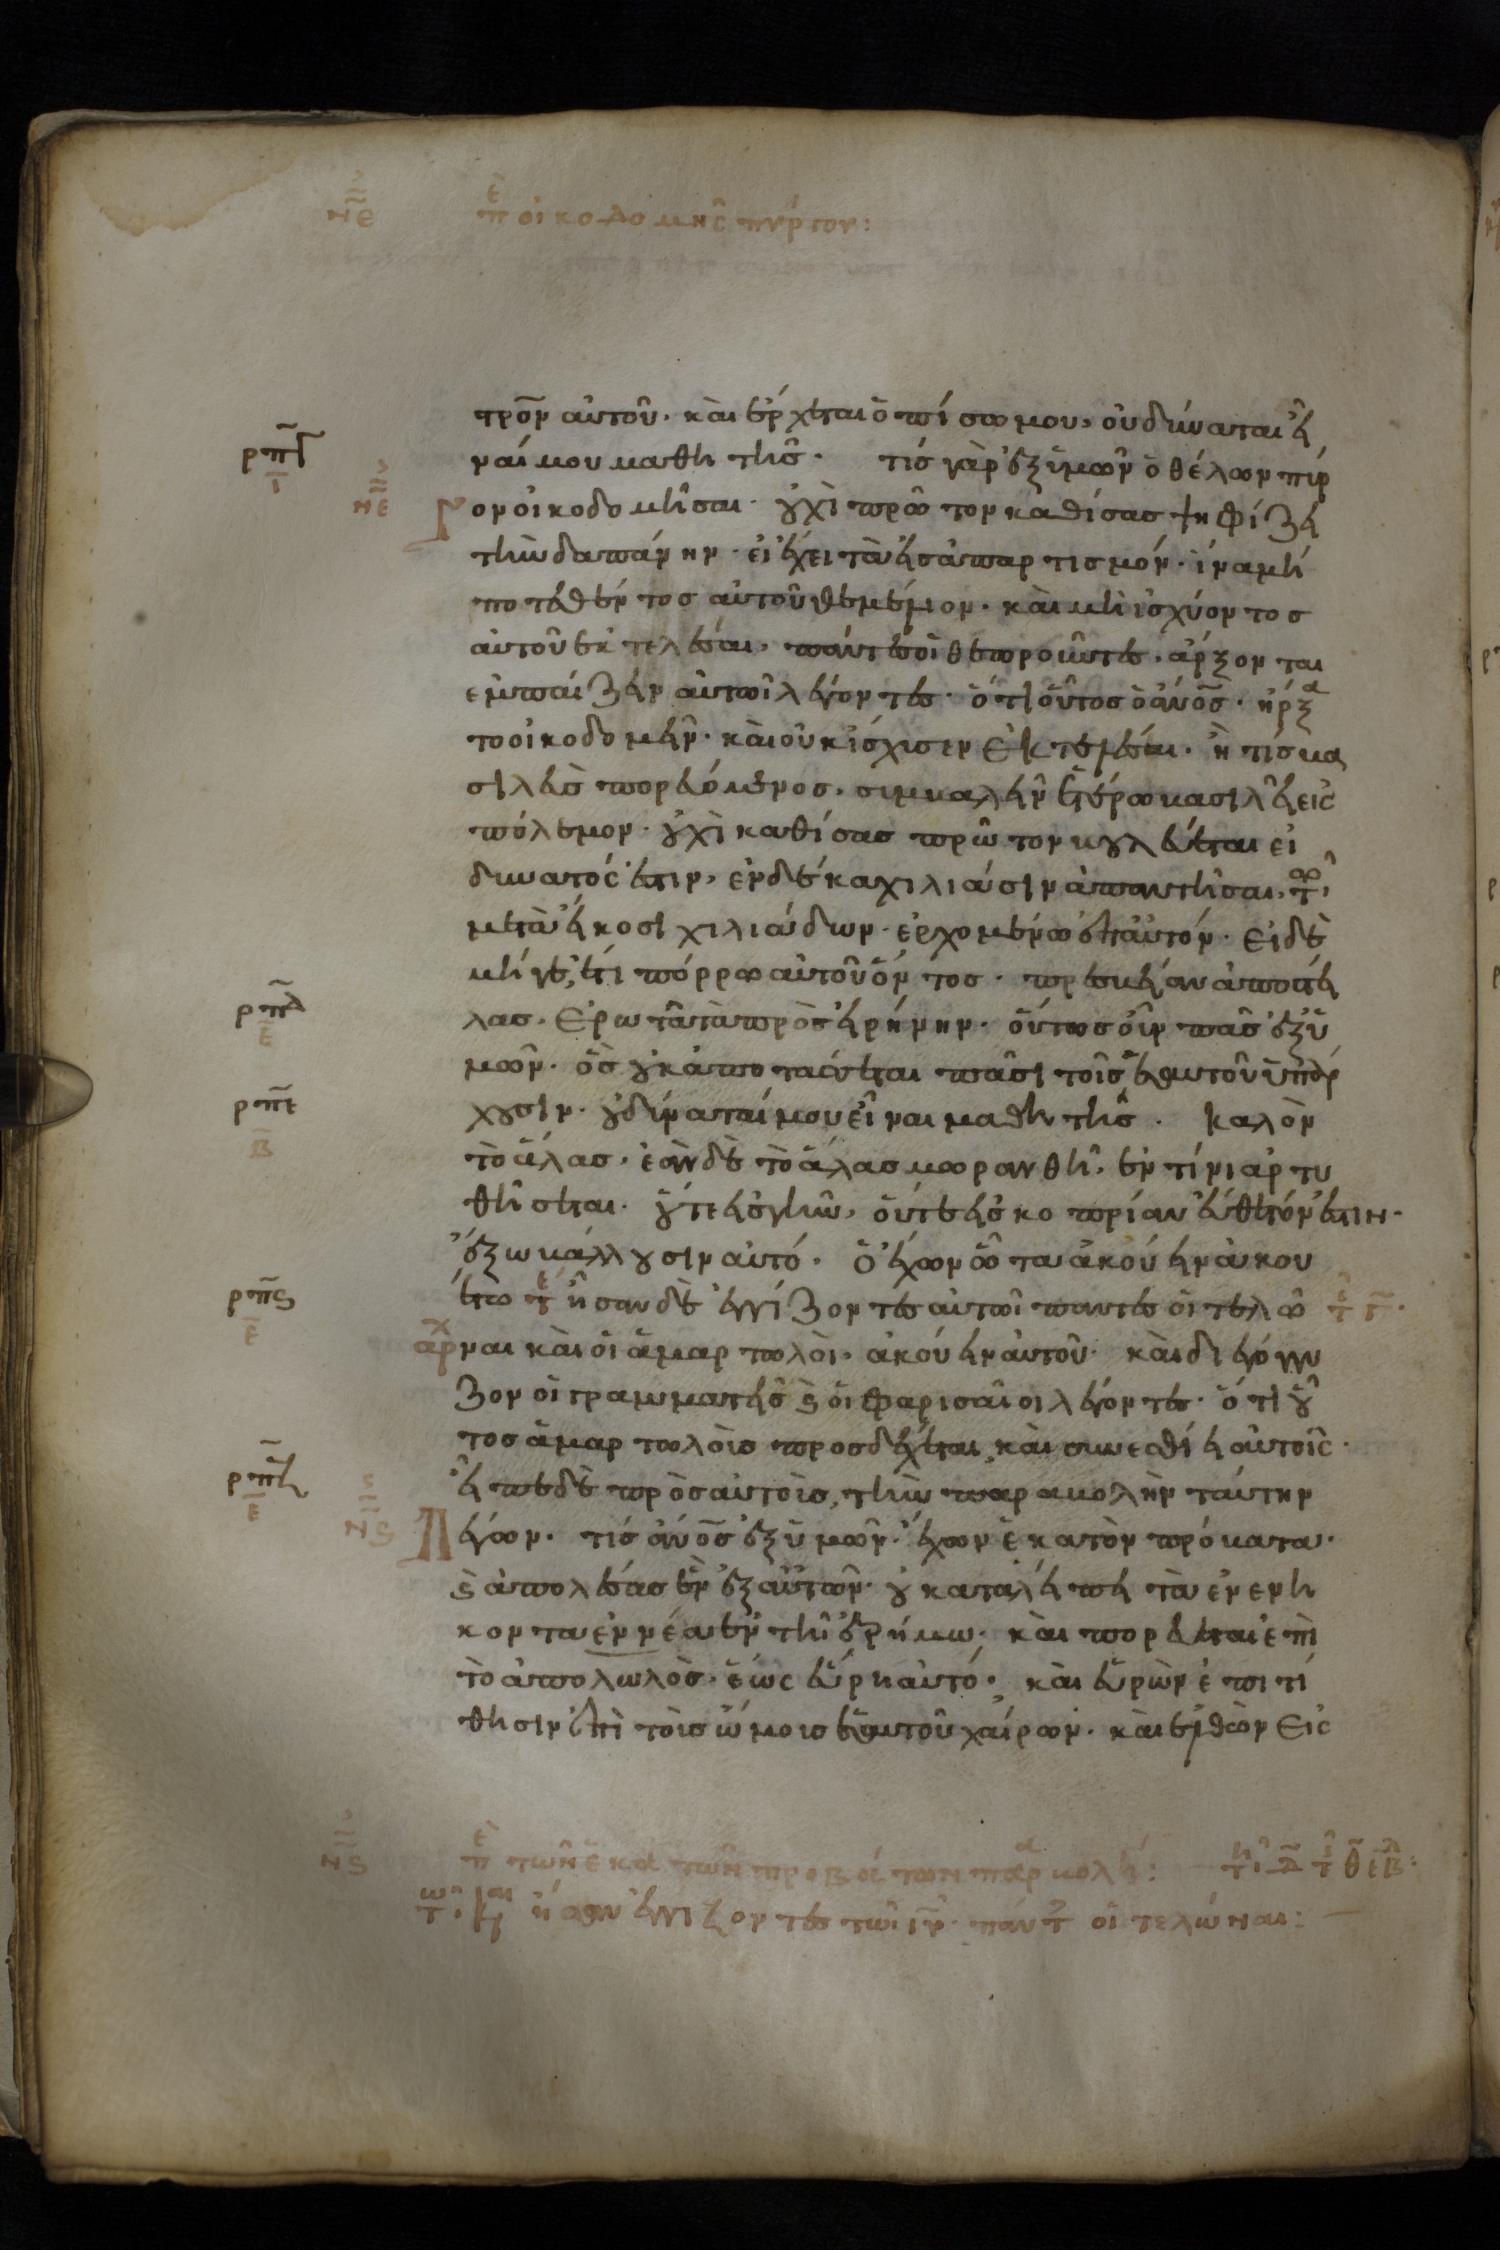 νε ἐπ οἰκοδομῆς πύργου:
τρον αὐτοῦ· καὶ ἔρχεται ὀπίσω μου, οὐ δύναται εἶ
ρπγ ναί μου μαθητής· τίς γὰρ ἐξ ὑμῶν ὁ θέλων πύρ
ι νε γον οἰκοδομῆσαι· οὐχὶ πρῶτον καθίσας ψηφίζει
τὴν δαπάνην· εἰ ἔχει τὰ εἰς ἀπαρτισμόν· ἵνα μή
ποτε θέντος αὐτοῦ θεμέλιον· καὶ μὴ ἰσχύοντος
αὐτοῦ ἐκτελέσαι, πάντες οἱ θεωροῦντες, ἄρξονται
ἐμπαίζειν αὐτῶ λέγοντες· ὅτι οὗτος ὁ ἄνος· ἤρξα
το οἰκοδομεῖν· καὶ οὐκ ἴσχισεν ἐκτελέσαι· ἢ τίς βα
σιλεὺς πορευόμενος, συμβαλεῖν ἑτέρω βασιλεῖ εἰς
πόλεμον· οὐχὶ καθίσας πρῶτον βουλεύεται εἰ
δυνατός ἐστιν, ἐν δέκα χιλιάσιν ἀπαντῆσαι, τῶ
μετὰ εἴκοσι χιλιάδων· ἐρχομένω ἐπ αὐτόν· εἰ δὲ
μή γε, ἔτι πόρρω αὐτοῦ ὄντος· πρεσβείαν ἀποστεί
ρπδ λας· ἐρωτᾶ τὰ πρὸς εἰρήνην· οὕτως οὖν πᾶς ἐξ ὑ
ε μῶν· ὃς οὐκ ἀποτάσσεται πᾶσι τοῖς ἑαυτοῦ ὑπάρ
ρπε χουσιν· οὐ δύναταί μου εἶναι μαθητής· καλὸν
β τὸ ἅλας· ἐὰν δὲ τὸ ἅλας μωρανθῆ, ἐν τίνι ἀρτυ
θήσεται· οὔτε εἰς γῆν, οὔτε εἰς κοπρίαν εὔθετόν ἐστιν·
ἔξω βάλλουσιν αὐτό· ὁ ἔχων ὦτα ἀκούειν ἀκου
ρπς έτω τε ἦσαν δὲ ἐγγίζοντες αὐτῶ πάντες οἱ τελῶ
ε αρχ ναι καὶ οἱ ἁμαρτωλοὶ, ἀκούειν αὐτοῦ· καὶ διεγόγγυ
ζον οἱ γραμματεῖς ϗ οἱ φαρισαῖοι λέγοντες· ὅτι οὗ
τος ἁμαρτωλοὺς προσδέχεται, καὶ συνεσθίει αὐτοῖς·
ρπζ εἶπε δὲ πρὸς αὐτοὺς, τὴν παραβολὴν ταύτην
ε νς λέγων· τίς ἄνος ἐξ ὑμῶν· ἔχων ἑκατὸν πρόβατα·
ϗ ἀπολέσας ἓν ἐξ αὐτῶν· οὐ καταλείπει τὰ ἐνενή
κοντα ἐννέα ἐν τῆ ἐρήμω· καὶ πορεύεται ἐπὶ
τὸ ἀπολωλὸς· ἕως εὕρη αὐτό· καὶ εὑρὼν ἐπιτί
θησιν ἐπὶ τοὺς ὤμους ἑαυτοῦ χαίρων· καὶ ἐλθὼν εἰς
νς ἐπ τῶν ἑκα τῶν προβάτων παραβολή:
τω κ ἦσαν ἐγγίζοντες τῶ ιυ· πάντ οἱ τελῶναι: